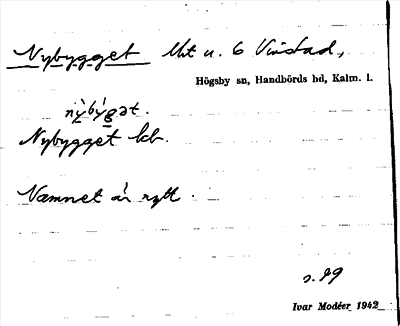 Nybygget lht u. 6 Vinstad,
Högsby sn, Handbörds hd, Kalm. l.
nỳbýgət.
Nybygget kb.
Namnet är nytt.
s. 99
Ivar Modéer 1942